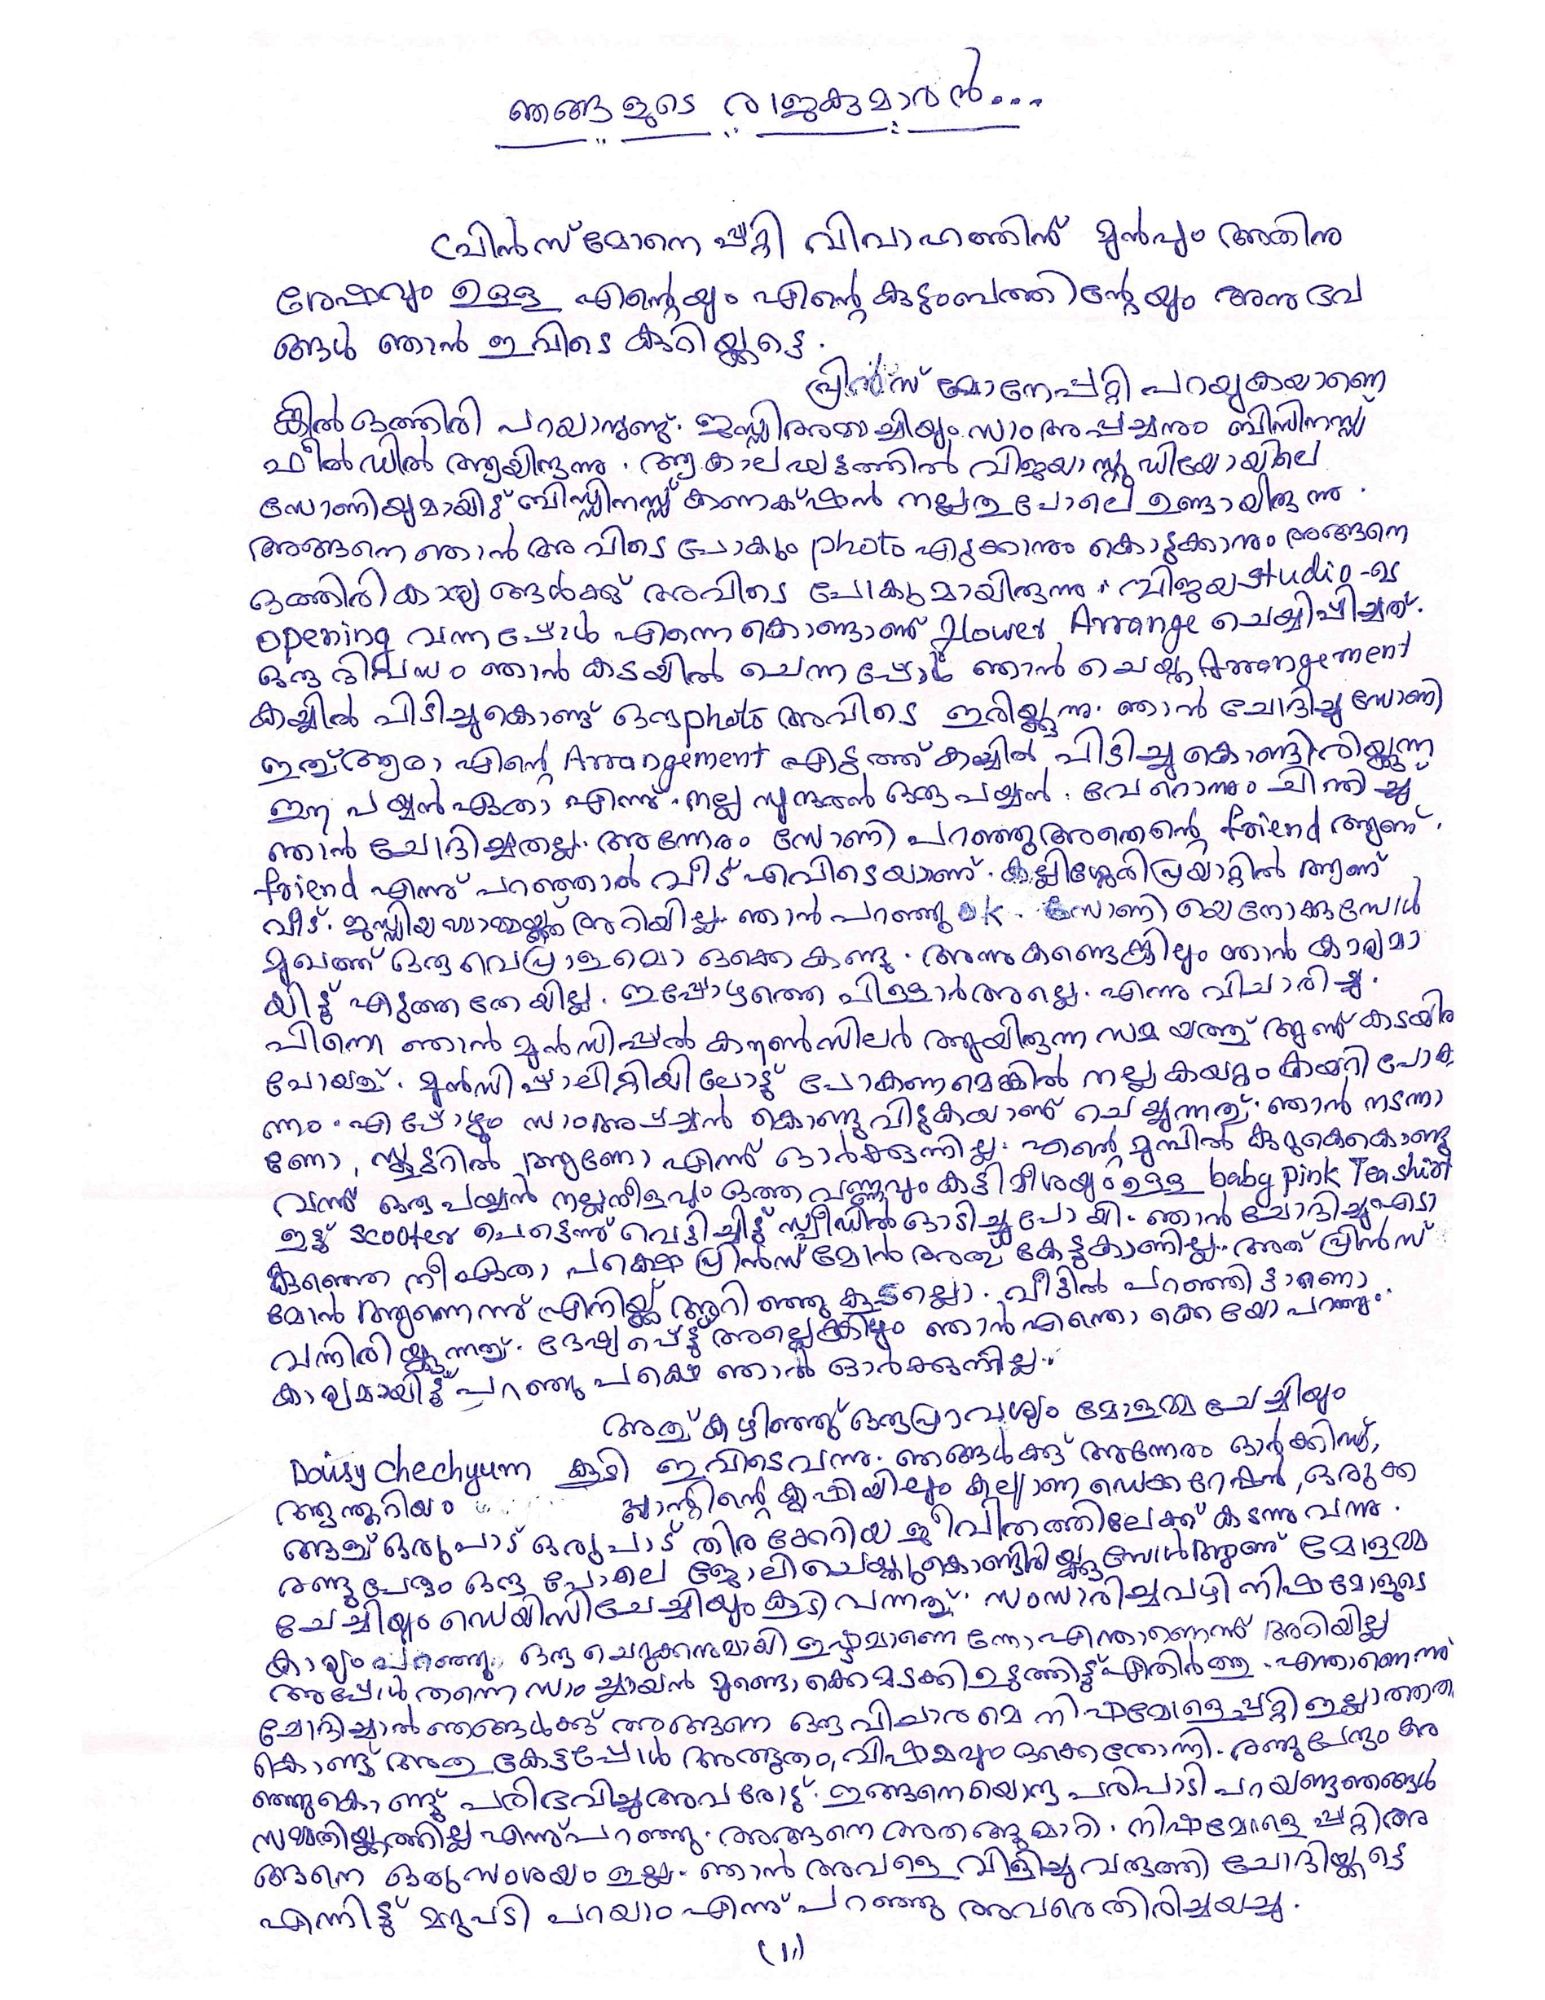 ഞങ്ങളുടെ രാജകുമാരൻ...
പ്രിൻസ് മോനെ പ്പറ്റി വിവാഹത്തിന് മുൻപും അതിനു
ശേഷവും ഉള്ള എന്റെയും എന്റെ കുടുംബത്തിന്റേയും അനുഭവ
ങ്ങൾ ഞാൻ ഇവിടെ കുറിയ്ക്കട്ടെ.
പ്രിൻസ് മോനേപ്പറ്റി പറയുകയാണെ
ങ്കിൽ ഒത്തിരി പറയാനുണ്ട്. ജസ്സിഅമ്മച്ചിയും സാംഅപ്പച്ചനും ബിസിനസ്സ്
ഫീൽഡിൽ ആയിരുന്നു. ആ കാലഘട്ടത്തിൽ വിജയാസ്റ്റുഡിയോയിലെ
സോണിയുമായിട്ട് ബിസ്സിനസ്സ് കണക്ഷൻ നല്ലതുപോലെ ഉണ്ടായിരുന്നു.
അങ്ങനെ ഞാൻ അവിടെ പോകും photo എടുക്കാനും കൊടുക്കാനും അങ്ങനെ
ഒത്തിരി കാര്യങ്ങൾക്ക് അവിടെ പോകുമായിരുന്നു. വിജയ studio-ടെ
opening വന്നപ്പോൾ എന്നെ കൊണ്ടാണ് flower Arrange ചെയ്യിപ്പിച്ചത്.
ഒരു ദിവസം ഞാൻ കടയിൽ ചെന്നപ്പോൾ ഞാൻ ചെയ്ത Arrangement
കയ്യിൽ പിടിച്ചുകൊണ്ട് ഒരു photo അവിടെ ഇരിയ്ക്കുന്നു. ഞാൻ ചോദിച്ചു സോണി
ഇത് ആരാ എന്റെ Arrangement എടുത്ത് കയ്യിൽ പിടിച്ചുകൊണ്ടിരിയ്ക്കുന്ന
ഈ പയ്യൻ ഏതാ എന്ന്. നല്ല സുന്ദരൻ ഒരു പയ്യൻ. വേറൊന്നും ചിന്തിച്ച്
ഞാൻ ചോദിച്ചതല്ല. അന്നേരം സോണി പറഞ്ഞു അതെന്റെ friend ആണ്.
friend എന്ന് പറഞ്ഞാൽ വീട് എവിടെയാണ്. കല്ലിശ്ശേരി പ്രയാറ്റിൽ ആണ്
വീട്. ജസ്സിയമ്മാമ്മയ്ക്ക് അറിയില്ല. ഞാൻ പറഞ്ഞു ok. സോണിയെ നോക്കുമ്പോൾ
മുഖത്ത് ഒരു വെപ്രാളമൊ ഒക്കെ കണ്ടു. അന്നു കണ്ടെങ്കിലും ഞാൻ കാര്യമാ
യിട്ട് എടുത്തതേയില്ല. ഇപ്പോഴത്തെ പിള്ളാർ അല്ലെ. എന്നു വിചാരിച്ചു.
പിന്നെ ഞാൻ മുൻസിപ്പൽ കൗൺസിലർ ആയിരുന്ന സമയത്ത് ആണ് കടയിൽ
പോയത്. മുൻസിപ്പാലിറ്റിയിലോട്ട് പോകണമെങ്കിൽ നല്ല കയറ്റം കയറി പോക
ണം. എപ്പോഴും സാംഅപ്പച്ചൻ കൊണ്ടുവിടുകയാണ് ചെയ്യുന്നത്. ഞാൻ നടന്നാ
ണോ, സ്കൂട്ടറിൽ ആണോ എന്ന് ഓർക്കുന്നില്ല. എന്റെ മുമ്പിൽ കുറുകെകൊണ്ടു
വന്ന് ഒരു പയ്യൻ നല്ലനീളവും ഒത്തവണ്ണവും കട്ടിമീശയും ഉള്ള baby pink Tea shirt
ഇട്ട് scooter പെട്ടെന്ന് വെട്ടിച്ചിട്ട് സ്പീഡിൽ ഓടിച്ചുപോയി. ഞാൻ ചോദിച്ചു എടാ
കുഞ്ഞെ നീ ഏതാ പക്ഷെ പ്രിൻസ് മോൻ അത് കേട്ടുകാണില്ല. അത് പ്രിൻസ്
മോൻ ആണെന്ന് എനിയ്ക്ക് അറിഞ്ഞു കൂടല്ലൊ. വീട്ടിൽ പറഞ്ഞിട്ടാണൊ
വന്നിരിയ്ക്കുന്നത്. ദേഷ്യപ്പെട്ട് അല്ലെങ്കിലും ഞാൻ എന്തൊക്കെയോ പറഞ്ഞു.
കാര്യമായിട്ട് പറഞ്ഞു പക്ഷെ ഞാൻ ഓർക്കുന്നില്ല.
അത് കഴിഞ്ഞ് ഒരുപ്രാവശ്യം മോളമ്മ ചേച്ചിയും
Daisy Chechyum കൂടി ഇവിടെ വന്നു. ഞങ്ങൾക്ക് അന്നേരം ഓർക്കിഡ്,
ആന്തൂറിയം പ്ലാന്റിന്റെ കൃഷിയിലും കല്യാണ ഡെക്കറേഷൻ, ഒരുക്ക
ങ്ങള് ഒരുപാട് ഒരുപാട് തിരക്കേറിയ ജീവിതത്തിലേക്ക് കടന്നു വന്നു.
രണ്ടുപേരും ഒരു പോലെ ജോലി ചെയ്തുകൊണ്ടിരിയ്ക്കുമ്പോൾ ആണ് മോളമ്മ
ചേച്ചിയും ഡെയിസിചേച്ചിയും കൂടി വന്നത്. സംസാരിച്ചവഴി നിഷമോളുടെ
കാര്യം പറഞ്ഞു. ഒരു ചെറുക്കനുമായി ഇഷ്ടമാണെന്നോ എന്താണെന്ന് അറിയില്ല
അപ്പോൾ തന്നെ സാംച്ചായൻ മുണ്ടൊക്കെ മടക്കി ഉടുത്തിട്ട് എതിർത്തു. എന്താണെന്ന്
ചോദിച്ചാൽ ഞങ്ങൾക്ക് അങ്ങനെ ഒരു വിചാരമെ നിഷമോളെപ്പറ്റി ഇല്ലാത്തതു
കൊണ്ട് അതു കേട്ടപ്പോൾ അത്ഭുതം, വിഷമവും ഒക്കെ തോന്നി. രണ്ടുപേരും കര
ഞ്ഞുകൊണ്ട് പരിഭവിച്ചു അവരോട്. ഇങ്ങനെയൊരു പരിപാടി പറയണ്ട ഞങ്ങൾ
സമ്മതിയ്ക്കത്തില്ല എന്ന് പറഞ്ഞു. അങ്ങനെ അതങ്ങുമാറി. നിഷമോളെപ്പറ്റി അ
ങ്ങനെ ഒരു സംശയം ഇല്ല. ഞാൻ അവളെ വിളിച്ചു വരുത്തി ചോദിയ്ക്കട്ടെ
എന്നിട്ട് മറുപടി പറയാം എന്ന് പറഞ്ഞു അവരെ തിരിച്ചയച്ചു.
(1)